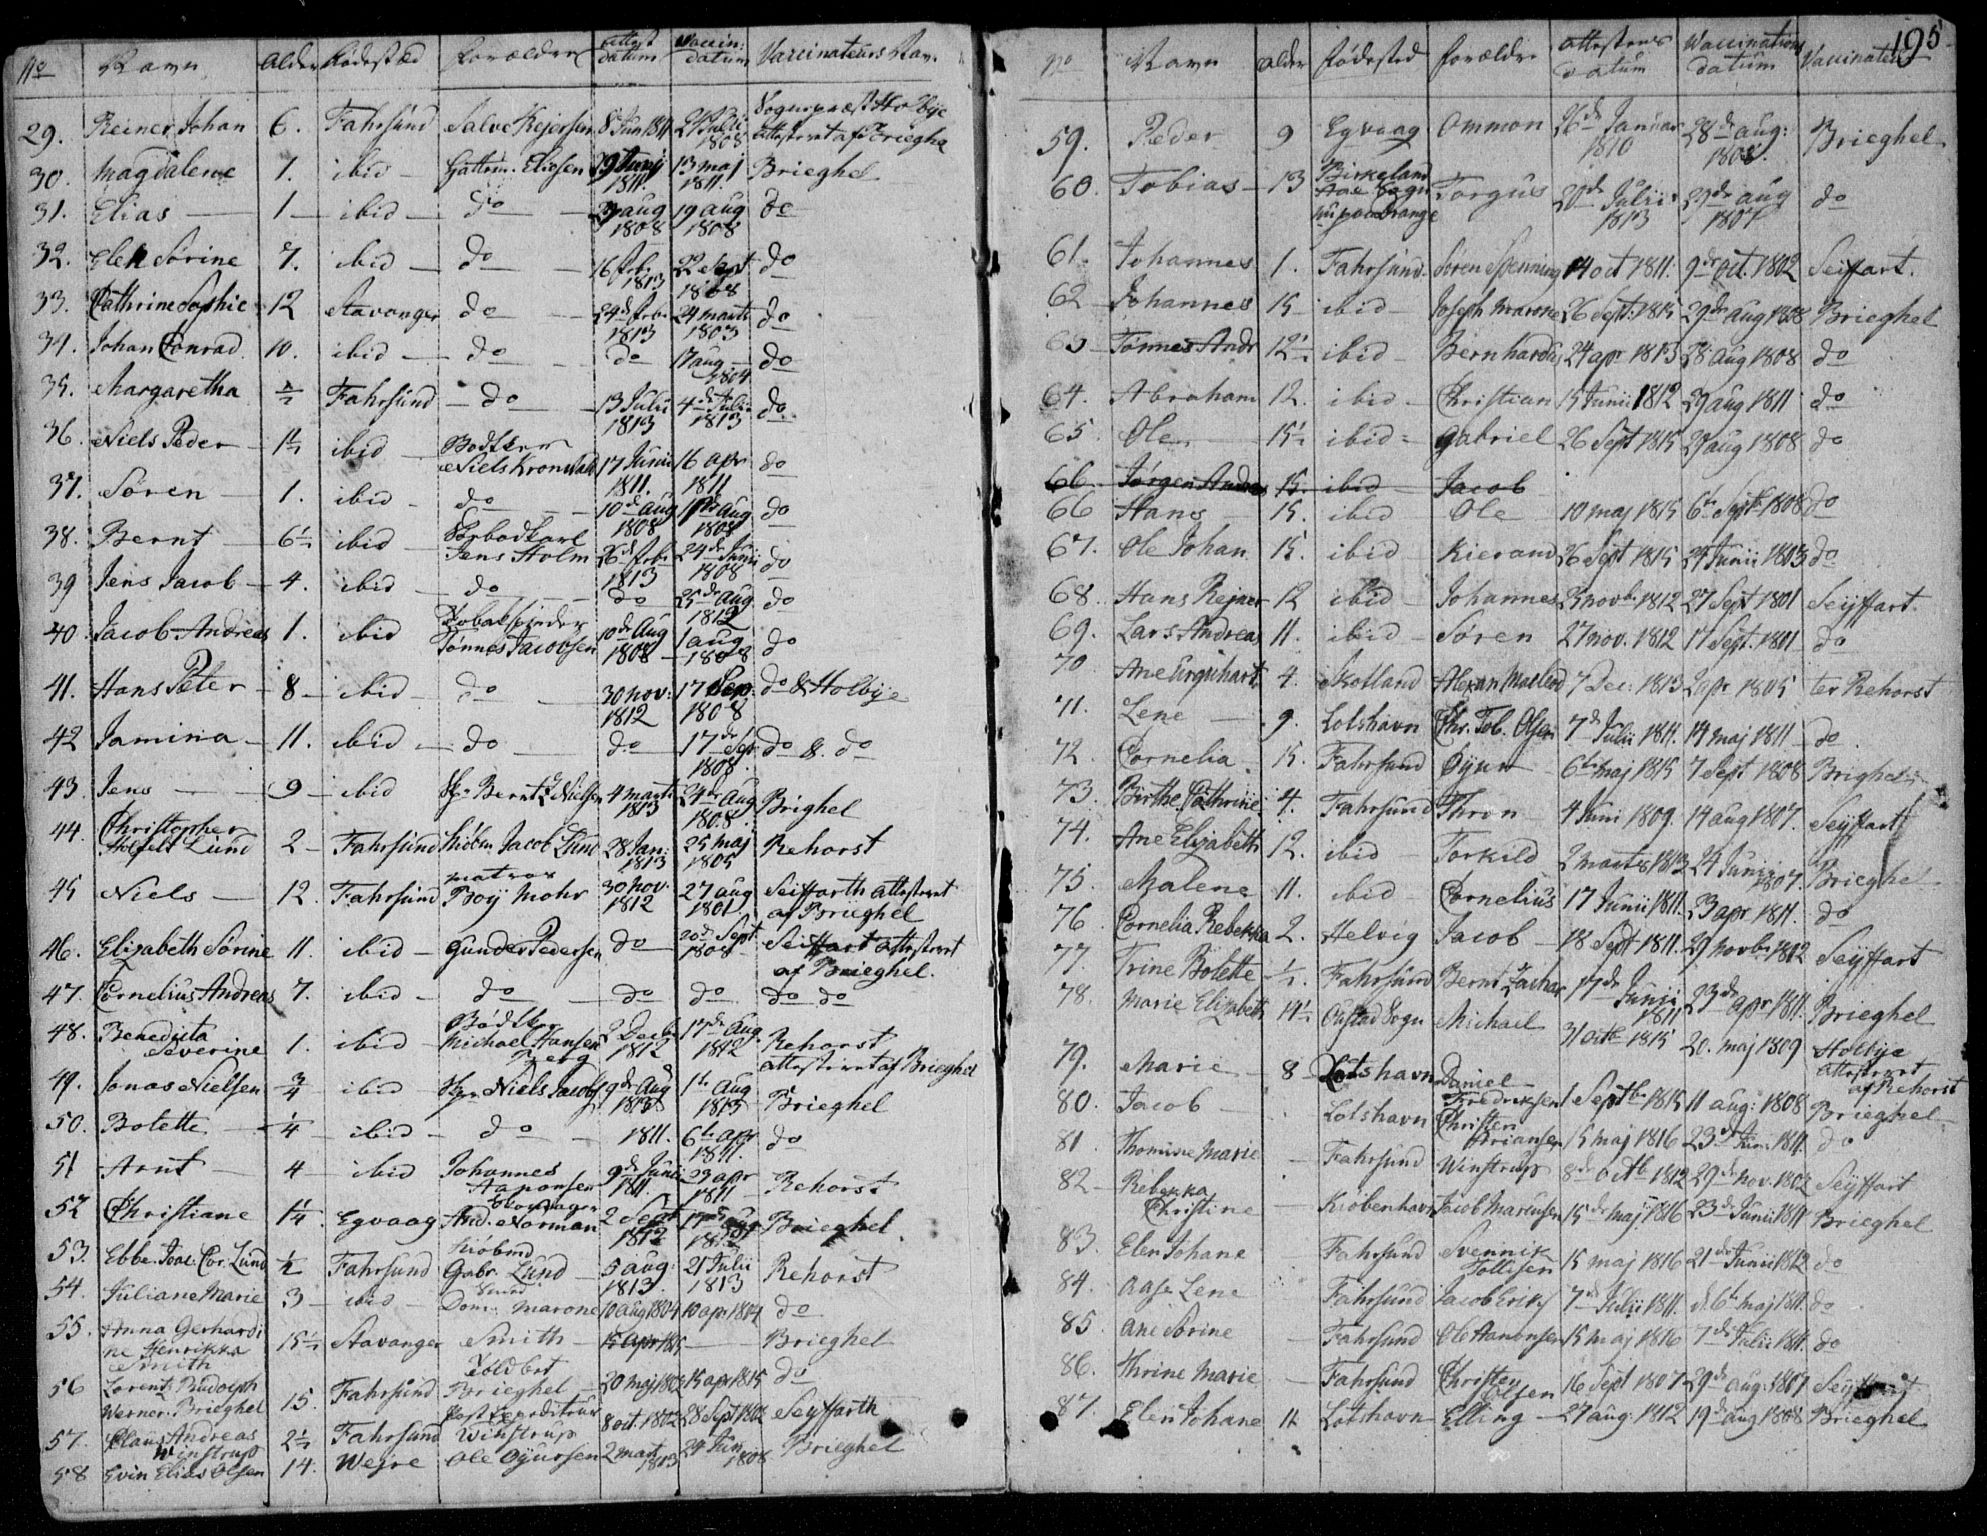 No Navn Alder Fødestæd Forældre Attest datum Vaccin: datum Vaccinateurs Nav.
29. Reiner Johan 6. Fahrsund Salve Rejersen 8 Jun 1811 21 Julii 1808 Sognepræst Holbye attesteret af Brieghel
30. Magdalene 1. ibid Guttorm Eliesen 19 Junij 1811. 13 maj 1811. Brieghel
31. Elias 1 ibid do 29 aug 1808 19 aug 1808 do
32. Elen Sørine 7. ibid do 16 febr. 1813 22 Sept 1808 do
33. Cathrine Sophie 12 Stavanger do 24de febr. 1813 24 marts 1803 do
34. Johan Conrad 10. ibid do do 17 aug 1804 do
35. Margaretha 1/2 Fahrsund do 13 Julii 1813 4de Julii 1813 do
36. Niels Peder 1 1/2 ibid Bødtker Niels Kronstad 17 Junii 1811. 16 apr 1811 do
37. Søren 1. ibid do 10de aug 1808 1ste aug 1808 do
38. Bernt 6 1/2 ibid Jens Holm 26de febr. 1813 24de Junii 1808 do
39 Jens Jacob 4. ibid do do 25de aug. 1812 do
40. Jacob Andreas 1. ibid Tobakspinder Tønnes Jacobsen 10de Aug 1808 1 aug 1808 do
41. Hans Peter 8 ibid do 30 nov: 1812 17 Sep. 1808 do & Holbye
42 Jamina 11. ibid do do 17de Sep 1808. do & do
43. Jens 9 ibid Sk. Bernt Nielsen 4 marts 1813 24de Aug 1808. Brighel
44. Christopher Holfelt Lund 2 Fahrsund Kiøbm. Jacob Lund 28 Jan: 1813 25 maj 1805 Rehorst
45 Niels 12. Fahrsund matros Boÿ Mohr 30 nov. 1812 27 aug 1801. Seiffarth attesteret af Brieghel
46. Elizabeth Sørine 11. ibid Gunder Pedersen do 20de Sept 1808 Seiffart attesteret af Brieghel.
47. Cornelius Andreas 7. ibid do do do do do
48. Benedicta Severine 1. ibid Bødtker Michael Hansen Berg 2 Decbr 1812 17de Aug. 1812 Rehorst attesteret af Brieghel
49. Jonas Nielsen 3/4 ibid Sk. Niels Jacobs 9de Aug 1813 1ste Aug 1813 Brieghel
50. Bolette 1/4 ibid do 1811. 6te apr 1811. do
51 Arnt 4 ibid Johannes Aanonsen 9de Junii 1811. 23 apr 1811 Rehorst
52 Christiane 1 1/4. Egvaag And. Norman 2 Sept 1812 17de Aug 1812 Brieghel.
53. Ebbe Isac Cor. Lund 1/2 Fahrsund Kiøbmd Gabr. Lund 5 aug: 1813. 21 Julii 1813 Rehorst
54. Juliane Marie 3 ibid Smed Dom. Marone 10 aug 1804 10 apr 1804 do
55. Anna Gerhardine Henrikka Smith 15 1/2 Stavanger Smith 15 apr 1815 Brieghel
56 Lorentz Rudolph Werner Brieghel 15. Fahrsund Toldbet Brieghel 20 maj 1802 15 apr 1815 do
57. Claus Andreas Winstrup 2 1/2 Fahrsund Winstrup 8 oct 1802 28 Sept 1802 Seyffarth
58 Evin Elias Olsen 14. Wejre Ole Oÿursen 2 marts 1813 24 Jun 1808 Brieghel
195
No Navn Alder Fødested Forældre Attestens datum Vaccinations datum Vaccinateu
59. Peder 9 Egvaag Ommon 26de Januar 1810 28de aug: 1808. Brieghel
60. Tobias 13 Birkeland Sogn Torgus 20de Julii 1813 29de aug 1807 do
61. Johannes 1. Fahrsund Søren Spenning 14 oct 1811. 9de Oct. 1802 Seiffart.
62 Johannes 15 ibid Joseph Marone 26 Sept. 1815 29de aug 1808 Brieghel
63 Tønnes Andr 12 1/2 ibid Bernhardus 24 apr 1813 28 aug 1808 do
64. Abraham 12. ibid Christian 15 Junii 1812 29 aug 1811 do
65. Ole 15 1/2 ibid Gabriel 26 Sept 1815 29 aug 1808 do
66. Jørgen Andreas 15. ibid Jacob
66 Hans 15. ibid Ole 10 maj 1815 6te Sept 1808 do
67. Ole Johan 15. ibid Kierand 26 Sept 1815 24 Junii 1803 do
68. Hans Rejner 12 ibid Johannes 25 novb. 1812 27 Sept 1801 Seÿffart.
69. Lars Andreas 11. ibid Søren 27 nov. 1812 17 Sept. 1801 do
70 Ane Urquhart 4. Skotland Alexan Macleod 7 Dec. 1813 2 apr 1805 ter Rehorst
71. Lene 9. Lotshavn Chr. Tob. Olsen 7de Julii 1811. 14 maj 1811 do
72. Cornelia 15. Fahrsund Oÿur 6te maj 1815 7 Sept 1808 Brighel
73. Birthe Cathrine 4. Fahrsund Thron 4 Juni 1809. 14 aug 1807. Seyffart
74. Ane Elizabeth 12. ibid Torkild 2 martes 1813 24 Junii 1807. Brieghel
75. Malene 11. ibid Cornelius 17 Junii 1811. 23 apr 1811. do
76 Cornelia Rebekka 2. Helvig Jacob 18 Sept 1811. 29 novbr 1802 Seÿffart
77. Trine Bolette 1/2. Fahrsund Bernt Zachar 17de Junii 1811 23de apr 1811. Brieghel
78. Marie Elizabeth 14 1/2 Oustad Sogn Michael 31 octb 1815 20. maj 1809 Holbye attesteret af Rehorst
79. Marie 8 Lotshavn Daniel Fredriksen 1 Septbr 1815 11 aug: 1808 Brieghel
80. Jacob Lotshavn Christen Ariansen 15 maj 1816 23de Juni 1811. do
81 Thomine Marie Fahrsund Winstrup 8de octb 1812 29de nov. 1802 Seÿffart
82 Rebekka Christine Kiøbenhavn Jacob Mariusen 15de maj 1816 23de Junii 1811 Brieghel
83. Elen Johane Fahrsund Svennik Tollisen 15 maj 1816 21de Junii 1812 do
84. Aase Lene Fahrsund Jacob Eriks 7de Julii 1811. d. 6te maj 1811. do
85 Ane Sørine Fahrsund Ole Aanonsen 15 maj 1816 7de Julii 1811. do
86. Thrine Marie Fahrsund Christen Olsen 16 Sept 1807 29de aug. 1807 Seÿffart
87. Elen Johane 11 Lotshavn Elling 27 aug. 1812 19de aug 1808 Brieghel